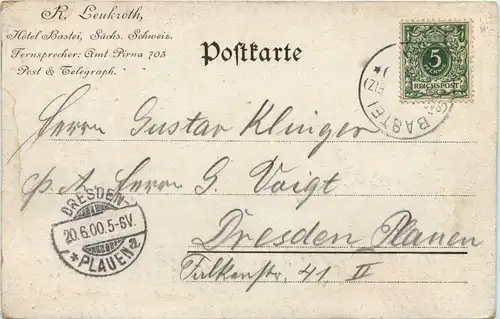 R. Leukroth,
Hotel Bastei, Sächs. Schweiz.
Fernsprecher: Amt Pirna 703
Post & Telegraph.
Postkarte
5
REICHSPOST
BASTEI
Herrn Gustav Klinger
p. A. Herrn G. Voigt
Dresden Plauen
Falkenstr. 41 II
DRESDEN-
20.6.00.5-6V.
*PLAUEN a